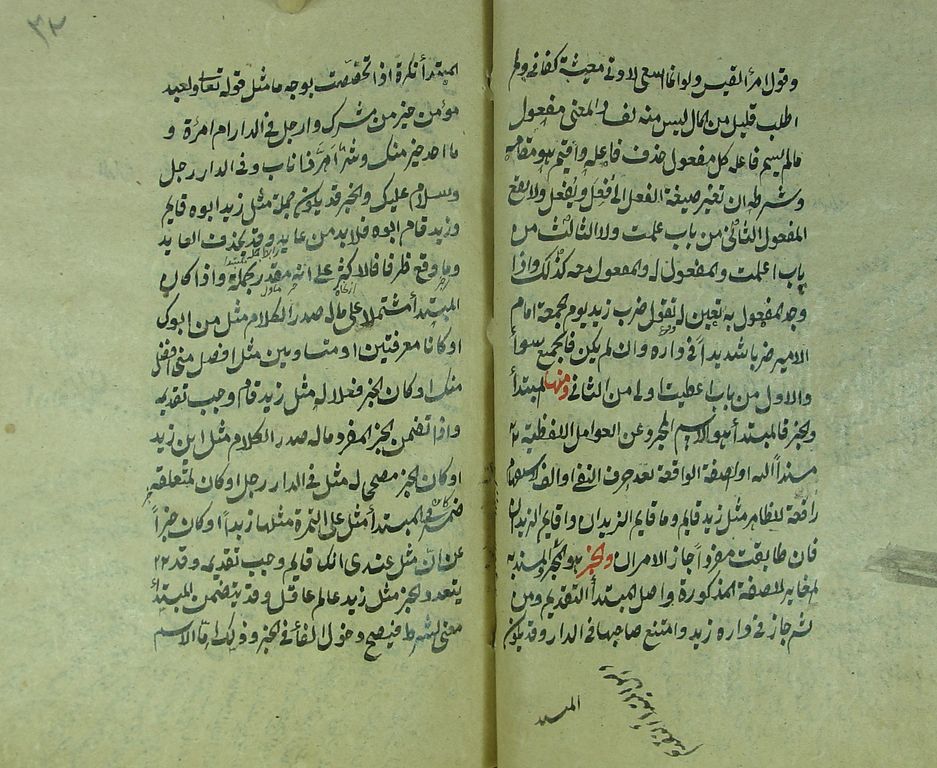 وقول امرأ القيس ولوانما اسعى لادنى معيشة كفانى ولم
اطلب قليل من المال ليس منه لفساد المعنى مفعول
مالم يسم فاعله كل مفعول حذف فاعله واقيم هو مقامه
وشرطه ان تغير صيغة الفعل الى فُعِلَ ويُفعَل ولا يقع
المفعول الثانى من باب علمت ولا الثالث من
باب اعلمت والمفعول له والمفعول معه كذلك واذا
وجد المفعول به تعين له تقول ضرب زيد يوم الجمعة امام
الامير ضربا شديداً فى داره وان لم يكن فالجميع سوأ
والاول من باب اعطيت اولى من الثانى ومنها المبتدأ
والخبر فالمبتدأ هو الاسم المجرد عن العوامل اللفظية
مسنداً اليه او الصفة الواقعة بعد حرف النفى او الف الاستفهام
رافعة لظاهر مثل زيد قايم وما قايم الزيدان واقايم الزيدان
فان طابقت مفرداً جاز الامران والخبر هو المجرد المسند به
المغاير للصفة المذكورة واصل المبتدأ التقديم ومن
ثم جاز فى داره زيد وامتنع صاحبها فى الدار وقد يكون
المبتدأ
٣٢
المبتدأ نكرة اذا تخصصت بوجه ما مثل قوله تعالى ولعبد
مؤمن خير من مشرك وارجل فى الدار ام امرأة و
ما احد خير منك وشرّ اهرّ ذا ناب وفى الدار رجل
وسلام عليك والخبر قد يكون جملة مثل زيد ابوه قايم
وزيد قام ابوه فلا بد من عايد وقد يحذف العايد
وما وقع ظرفا فالاكثر على انه مقدر بجملة واذا كان
المبتدأ مشتملا على ماله صدر الكلام مثل من ابوك
او كانا معرفتين او متساويين مثل افضل منى افضل
منك او كان الخبر فعلا له مثل زيد قام وجب تقديمه
واذا تضمن الخبر المفرد ماله صدر الكلام مثل اين زيد
او كان الخبر مصححا له مثل فى الدار رجل او كان لمتعلقه
ضمير فى المبتدأ مثل على التمرة مثلها زبداً او كان خبراً
عن انّ مثل عندى انك قايم وجب تقديمه وقد
يتعدد الخبر مثل زيد عالم عاقل وقد يتضمن المبتدأ
معنى الشرط فيصح دخول الفأ فى الخبر وذلك امّا الاسم